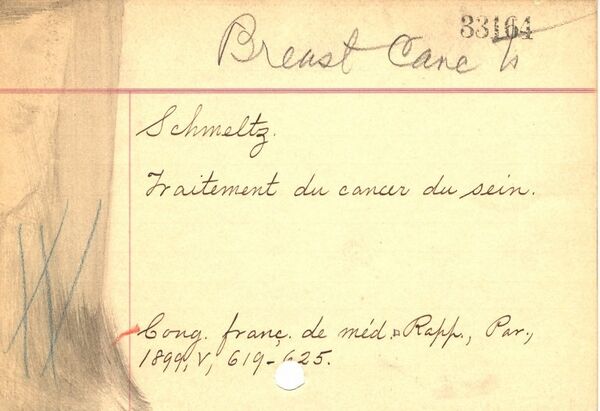 33164
Breast Canc Tr
Schmeltz.
Traitement du cancer du sein.
Cong. franç. de méd. Rapp., Par.,
1899, V, 619-625.